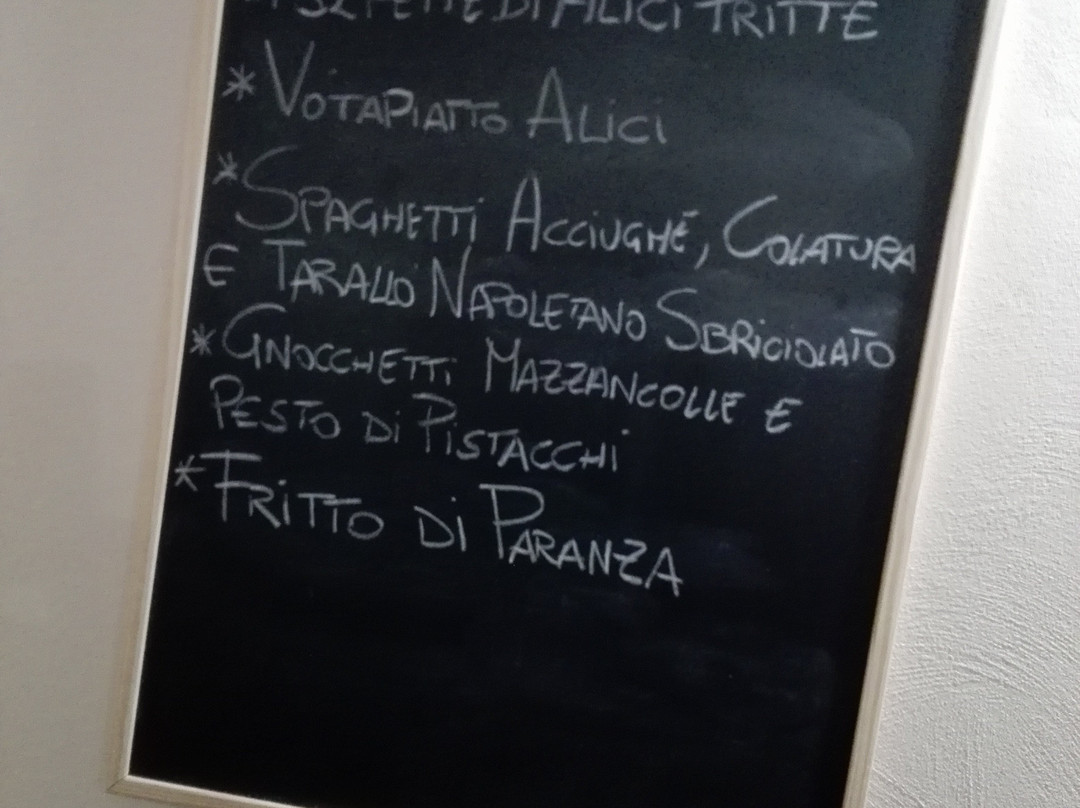 DI ALICI TRITTE
* VOTAPIATTO ALICI
* SPAGHETTI ACCIUGHE, COLATURA
E TARALLO NAPOLETANO SBRICIOLATO
* GNOCCHETTI MAZZANCOLLE E
PESTO DI PISTACCHI
* FRITTO DI PARANZA